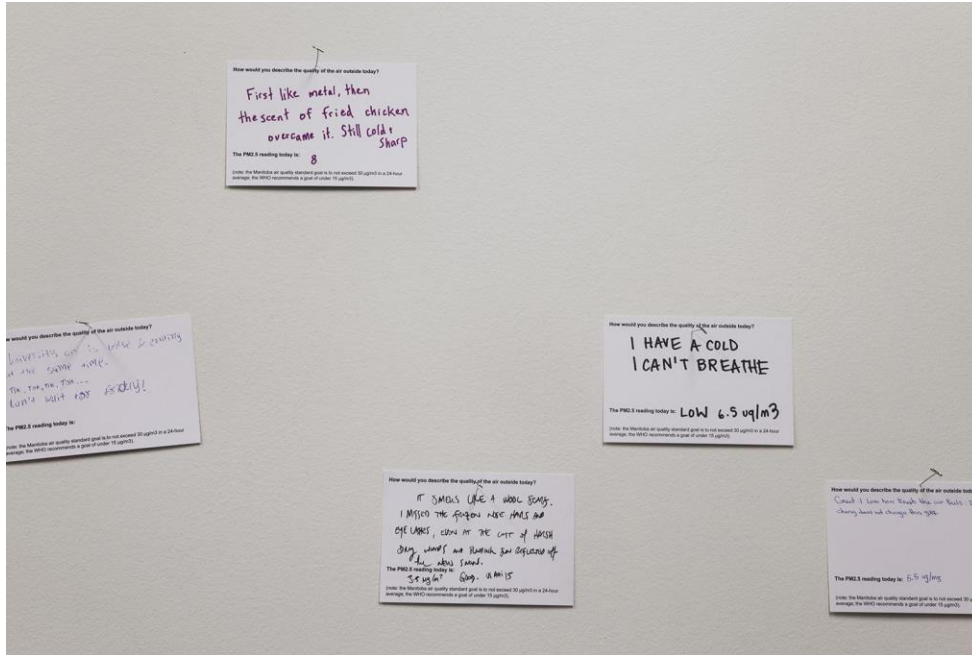 How would you describe the quality of the air outside today?
First like metal, then
the scent of fried chicken
overcame it. Still cold +
Sharp
The PM2.5 reading today is:
8
(note: the Manitoba air quality standard goal is to not exceed 30 µg/m3 in a 24-hour
average; the WHO recommends a goal of under 15 µg/m3).
would you describe the quality of the air outside today?
University air is & 
the same time.
Can't wait for
The PM2.5 reading today is:
(note: the Manitoba air quality standard goal is to not exceed 30 µg/m3 in a 24-hour
average; the WHO recommends a goal of under 15 µg/m3).
How would you describe the quality of the air outside today?
I HAVE A COLD
I CAN'T BREATHE
The PM2.5 reading today is: LOW 6.5 ug/m3
(note: the Manitoba air quality standard goal is to not exceed 30 µg/m3 in a 24-hour
average; the WHO recommends a goal of under 15 µg/m3).
How would you describe the quality of the air outside today?
IT SMELLS LIKE A WOOL SCARF.
I MISSED THE FROZEN NOSE HAIRS AND
EYE LASHES, EVEN AT THE COST OF HARSH
DRY WINDS AND SUN REFLECTED off
the NEW SNOW.
The PM2.5 reading today is:
3.5 µg/m³ Good.
(note: the Manitoba air quality standard goal is to not exceed 30 µg/m3 in a 24-hour
average; the WHO recommends a goal of under 15 µg/m3).
How would you describe the quality of the air outside
I love how the air feels
does not change this
The PM2.5 reading today is: 6.5 ug/m3
(note: the Manitoba air quality standard goal is to not exceed 30
average; the WHO recommends a goal of under 15 µg/m3).